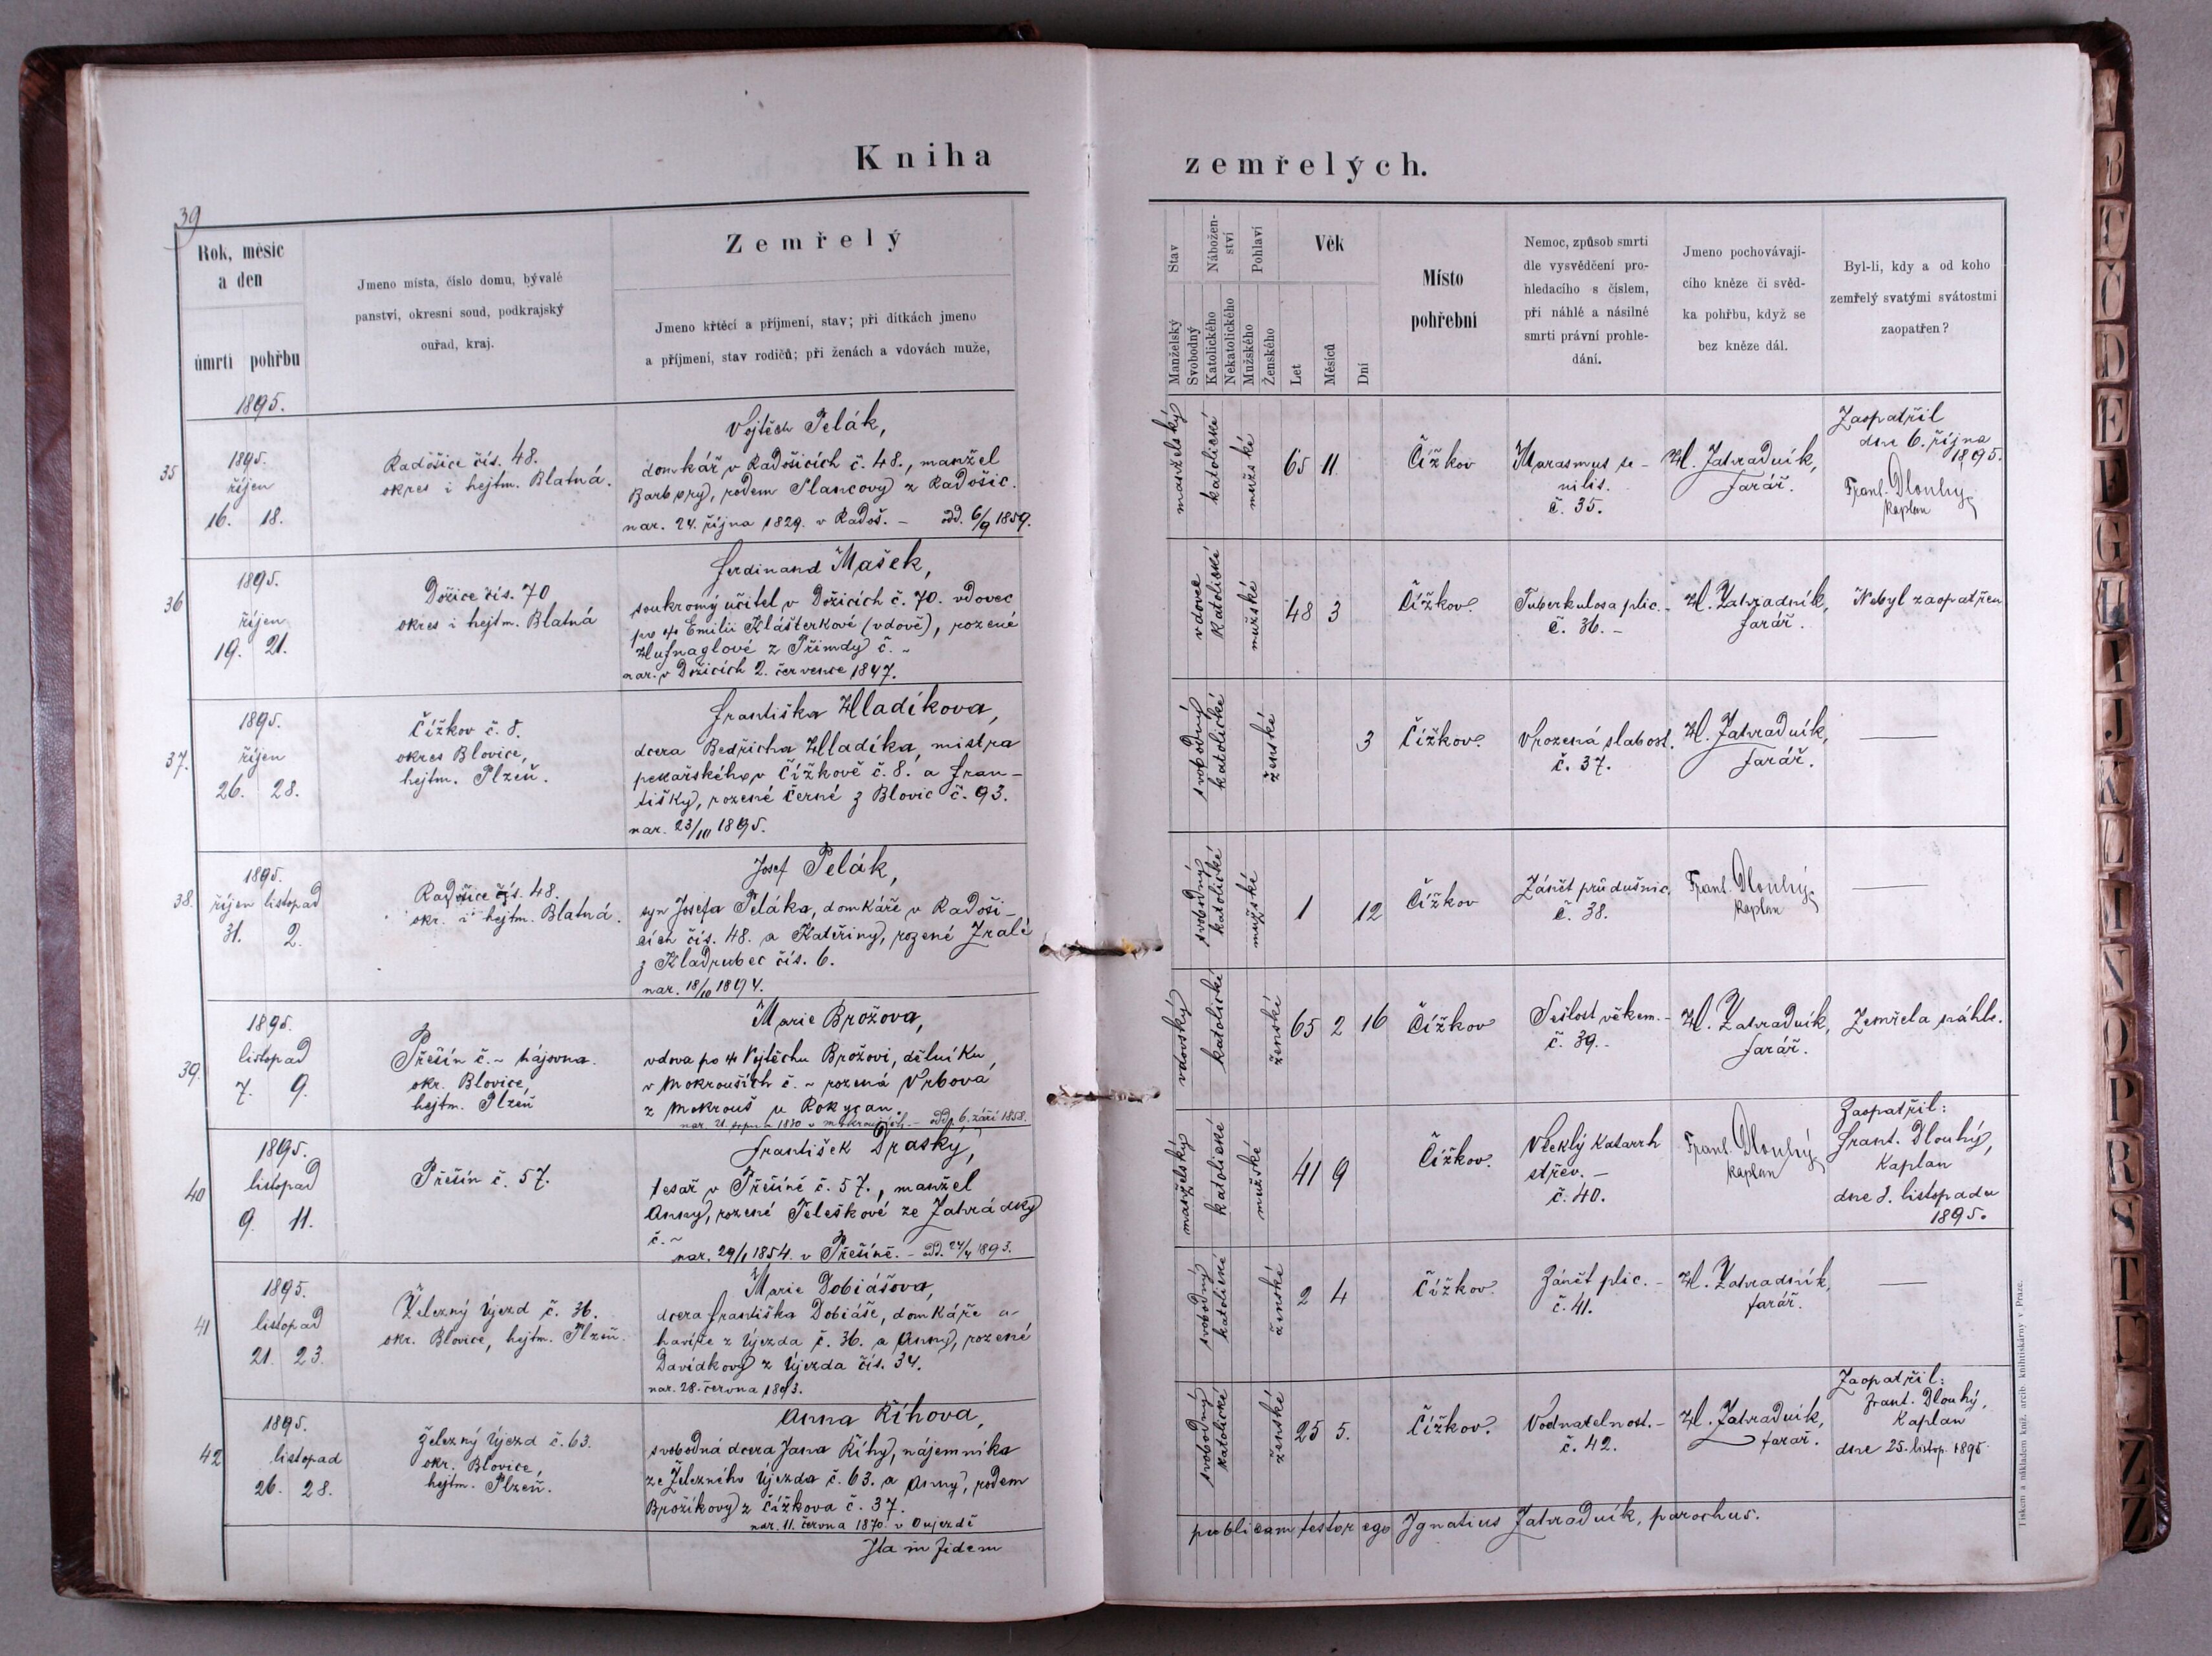 Kniha zemřelých.
39
Rok, měsíc
a den
úmrtí pohřbu
Jmeno místa, číslo domu, bývalé
panství, okresní soud, podkrajský
ouřad, kraj.
Zemřelý
Jmeno křtěcí a příjmení, stav; při dítkách jmeno
a příjmení, stav rodičů; při ženách a vdovách muže,
Stav
Manželský
Svobodný
Nábožen-
ství
Katolického
Nekatolického
Pohlaví
Mužského
Ženského
Věk
Let
Měsíců
Dní
Místo
pohřební
Nemoc, způsob smrti
dle vysvědčení pro-
hledacího s číslem,
při náhlé a násilné
smrti právní prohle-
dání.
Jmeno pochovávají-
cího kněze či svěd-
ka pohřbu, když se
bez kněze dál.
Byl-li, kdy a od koho
zemřelý svatými svátostmi
zaopatřen?
1895.
35
1895.
říjen
16. 18.
Radošice čís. 48.
okres i hejtm. Blatná.
Vojtěch Pelák,
domkář v Radošicích č. 48., manžel
Barbory, rodem Plancovy z Radošic.
nar. 24. října 1829. v Radoš. – odd. 6/9 1859.
manželský
katolické
mužské
65 11
Čížkov
Marasmus se-
nilis.
č. 35.
H. Zahradník,
farář.
Zaopatřil
dne 6. října
1895.
Frant. Dlouhý
kaplan
36
1895.
říjen
19. 21.
Dožice čís. 70
okres i hejtm. Blatná
Ferdinand Mašek,
soukromý učitel v Dožicích č. 70. vdovec
po Emilii Klášterkové (vdově), rozené
Hufnaglové z Přimdy č. ~
nar. v Dožicích 2. července 1847.
vdovec
katolické
mužské
48 3
Čížkov.
Tuberkulosa plic. –
č. 36. –
H. Zahradník,
farář.
Nebyl zaopatřen
37.
1895.
říjen
26. 28.
Čížkov č. 8.
okres Blovice,
hejtm. Plzeň.
Františka Hladíkova,
dcera Bedřicha Hladíka, mistra
pekařského v Čížkově č. 8. a Fran-
tišky, rozené Černé z Blovic č. 93.
nar. 23/10 1895.
svobodný
katolické
ženské
3
Čížkov.
Vrozená slabost.
č. 37.
H. Zahradník,
farář.
38.
1895.
říjen listopad
31. 2.
Radošice čís. 48.
okr. i hejtm. Blatná.
Josef Pelák,
syn Josefa Peláka, domkáře v Radoši-
cích čís. 48. a Kateřiny, rozené Zralé
z Kladrubec čís. 6.
nar. 18/10 1894.
svobodný
katolické
mužské
1 12
Čížkov
Zánět průdušnic.
č. 38.
Frant. Dlouhý
kaplan
39.
1895.
listopad
7. 9.
Přešín č. ~ hájovna.
okr. Blovice,
hejtm. Plzeň
Marie Brožova,
vdova po Vojtěchu Brožovi, dělníku
v Mokrouších č. ~ rozená Vrbová
z Mokrouš u Rokycan.
nar. 21. srpna 1830 v Mokrouších. – odd. 6. září 1858.
vdovský
katolické
ženské
65 2 16
Čížkov
Sešlost věkem. –
č. 39. –
H. Zahradník,
farář.
Zemřela náhle.
40
1895.
listopad
9. 11.
Přešín č. 57.
František Drasky,
tesař v Přešíně č. 57., manžel
Anny, rozené Peleškové ze Zahrádky
č. ~
nar. 29/1 1854. v Přešíně. – odd. 24/4 1893.
manželský
katolické
mužské
41 9
Čížkov.
Vleklý Katarrh
střev. –
č. 40.
Frant. Dlouhý
kaplan
Zaopatřil:
Frant. Dlouhý,
Kaplan
listopadu
1895.
41
1895.
listopad
21. 23.
Železný Újezd č. 36.
okr. Blovice, hejtm. Plzeň.
Marie Dobiášova,
dcera Františka Dobiáše, domkáře a
havíře z Újezda č. 36. a Anny, rozené
Davídkovy z Újezda čís. 34.
nar. 28. června 1893.
svobodný
katolické
ženské
2 4
Čížkov.
Zánět plic. –
č. 41.
H. Zahradník,
farář.
42
1895.
listopad
26. 28.
Železný Újezd č. 63.
okr. Blovice,
hejtm. Plzeň.
Anna Říhova,
svobodná dcera Jana Říhy, nájemníka
ze Železného Újezda č. 63. a Anny, rodem
Brožíkovy z Čížkova č. 37.
nar. 11. června 1870. v Oujezdě
svobodný
katolické
ženské
25 5.
Čížkov.
Vodnatelnost. –
č. 42.
H. Zahradník,
farář.
Zaopatřil:
Frant. Dlouhý,
Kaplan
dne 25. listop. 1895
Ita in fidem
publicam testor ego Ignatius Zahradník, parochus.
Tiskem a nákladem kníž. arcib. knihtiskárny v Praze.
B
T
Č
D
E
F
G
H
I
J
K
L
N
O
P
R
T
Z
Z